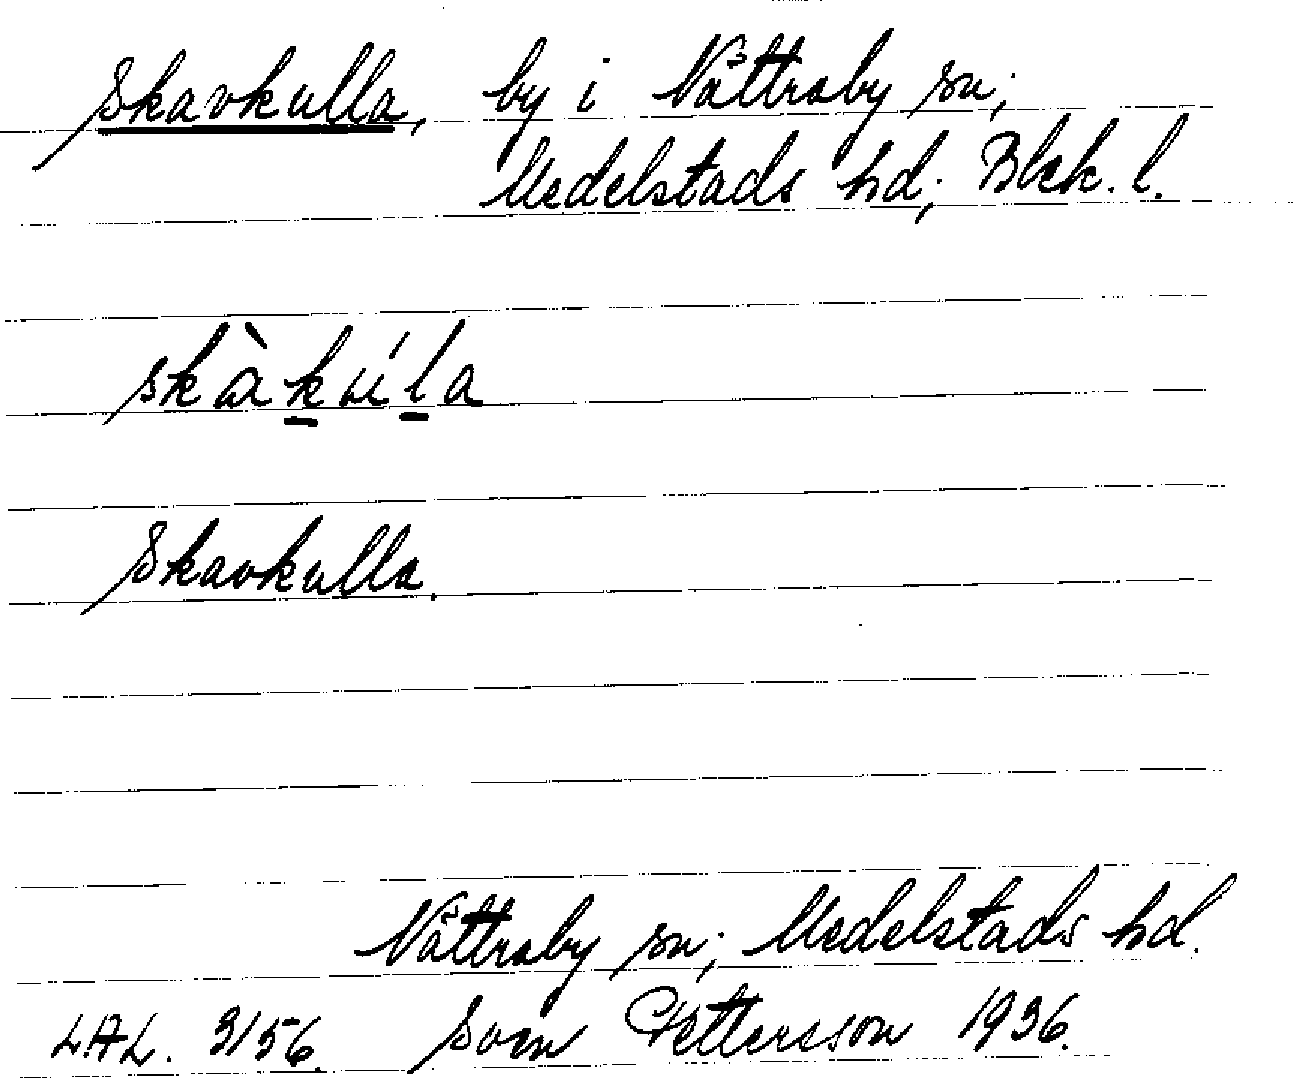 Skavkulla, by i Nättraby sn;
Medelstads hd; Blek. l.
skàkúla
Skavkulla.
Nättraby sn; Medelstads hd.
L.A.L. 3156. Sven Pettersson 1936.